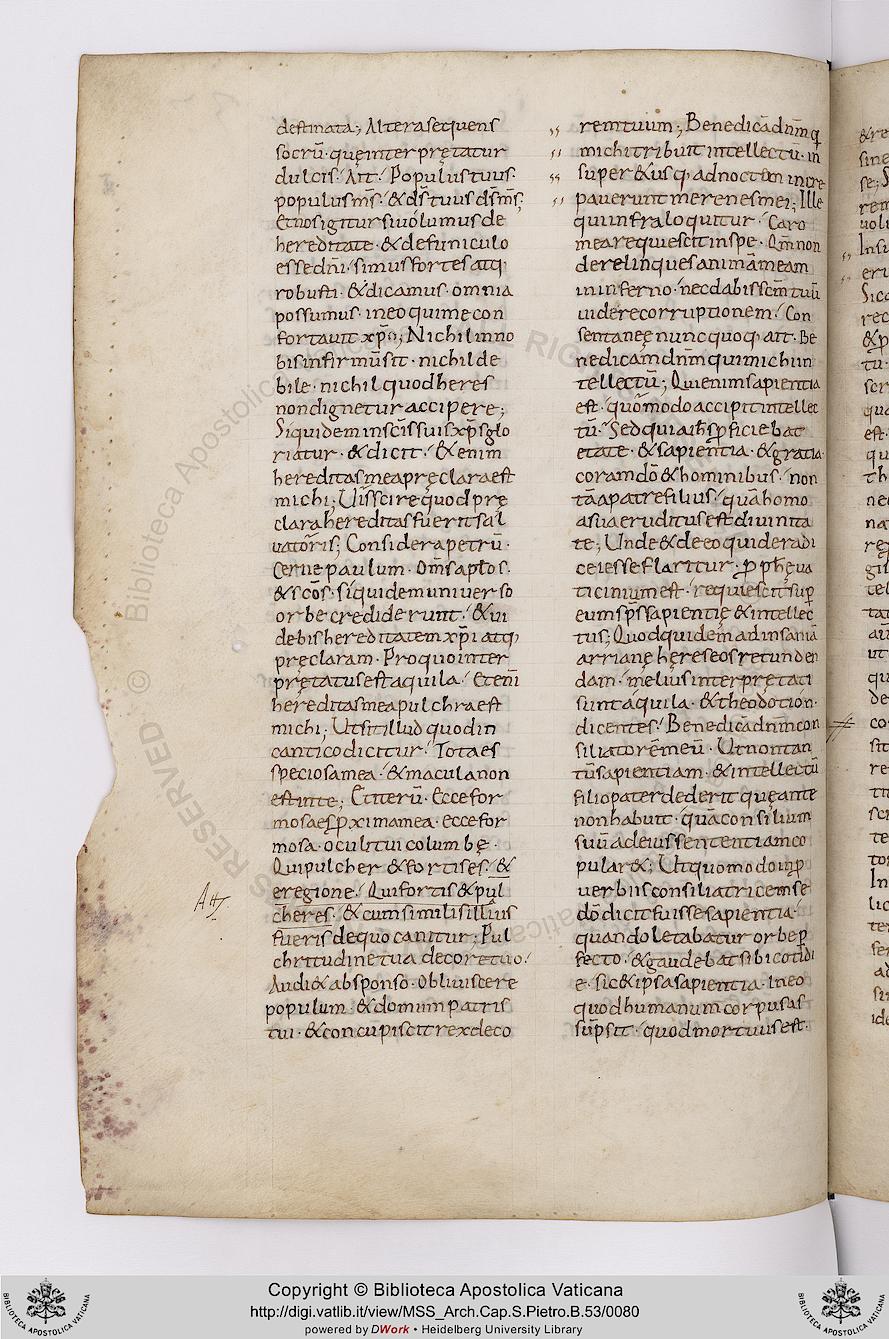 destinata; Altera sequens
socrū · quę interprętatur
dulcis · Ait · Populus tuus ·
populus m̄s · & d̄s tuus d̄s m̄s;
Et nos igitur si volumus de
hereditate · & de funiculo
esse dn̄i · simus fortes atq;
robusti · & dicamus · omnia
possumus · in eo qui me con
fortavit xp̄o; Nichil in no
bis infirmū sit · nichil de
bile · nichil quod heres
non dignetur accipere;
Siquidem in sc̄is suis xp̄s glo
riatur · & dicit · & enim
hereditas mea pręclara est
michi; Uis scire quod prę
clara hereditas fuerit sal
vatoris; Considera petrū ·
Cerne paulum · Om̄s aplos ·
& sc̄os · siquidem universo
orbe crediderunt · & vi
debis hereditatem xp̄i atq;
pręclaram · Pro quo inter
prętatus est aquila · Etenī
hereditas mea pulchra est
michi; Ut sit illud quod in
cantico dicitur · Tota es
speciosa mea · & macula non
est in te; Et iterū · Ecce for
mosa es p̱xima mea · ecce for
mosa · oculi tui columbę ·
Qui pulcher & fortis es · &
e regione · Qui fortis & pul
cher es · & cum similis illius
fueris de quo canitur; Pul
chritudine tua decore tuo ·
Audi & ab sponso · Obliviscere
populum · & domum patris
tui · & concupiscit rex deco
rem tuum; Benedicā dn̄m q̄
michi tribuit intellectū · in
super & usq; ad noctem incre
paverunt me renes mei; Ille
qui infra loquitur · Caro
mea requiescit in spe · Qm̄ non
derelinques animā meam
in inferno · nec dabis sc̄m tuū
videre corruptionem · Con
sentaneę nunc quoq; ait · Be
nedicam dn̄m qui michi in
tellectū; Qui enim sapientia
est · quomodo accipit intellec
tū · Sed quia ih̄s p̱ficiebat
etate · & sapientia · & gratia
coram dō & hominibus · non
tā a patre filius · quā homo
a sua eruditus est divinita
te; Unde & de eo qui de radi
ce iesse flaritur · p̱ ph̄ę va
ticinium est · requiescit sup̱
eum sp̄s sapientię & intellec
tus; Quod quidem ad insaniā
arrianę hereseos retunden
dam · melius interprętati
sunt aquila · & theodotion ·
dicentes · Benedicā dn̄m con
siliatorē meū · Ut non tan
tū sapientiam · & intellectū
filio pater dederit quę ante
non habuit · quā consilium
suū ad eius sententiam co
pular&; Ut quomodo in p̱
verbiis consiliatricem se
dō dicit fuisse sapientia ·
quando letabatur orbe p̱
fecto · & gaudebat sibi cotidi
e · sic & ipsa sapientia · in eo
quod humanum corpus as
sūpsit · quod mortuus est ·
Copyright © Biblioteca Apostolica Vaticana
http://digi.vatlib.it/view/MSS_Arch.Cap.S.Pietro.B.53/0080
powered by DWork • Heidelberg University Library